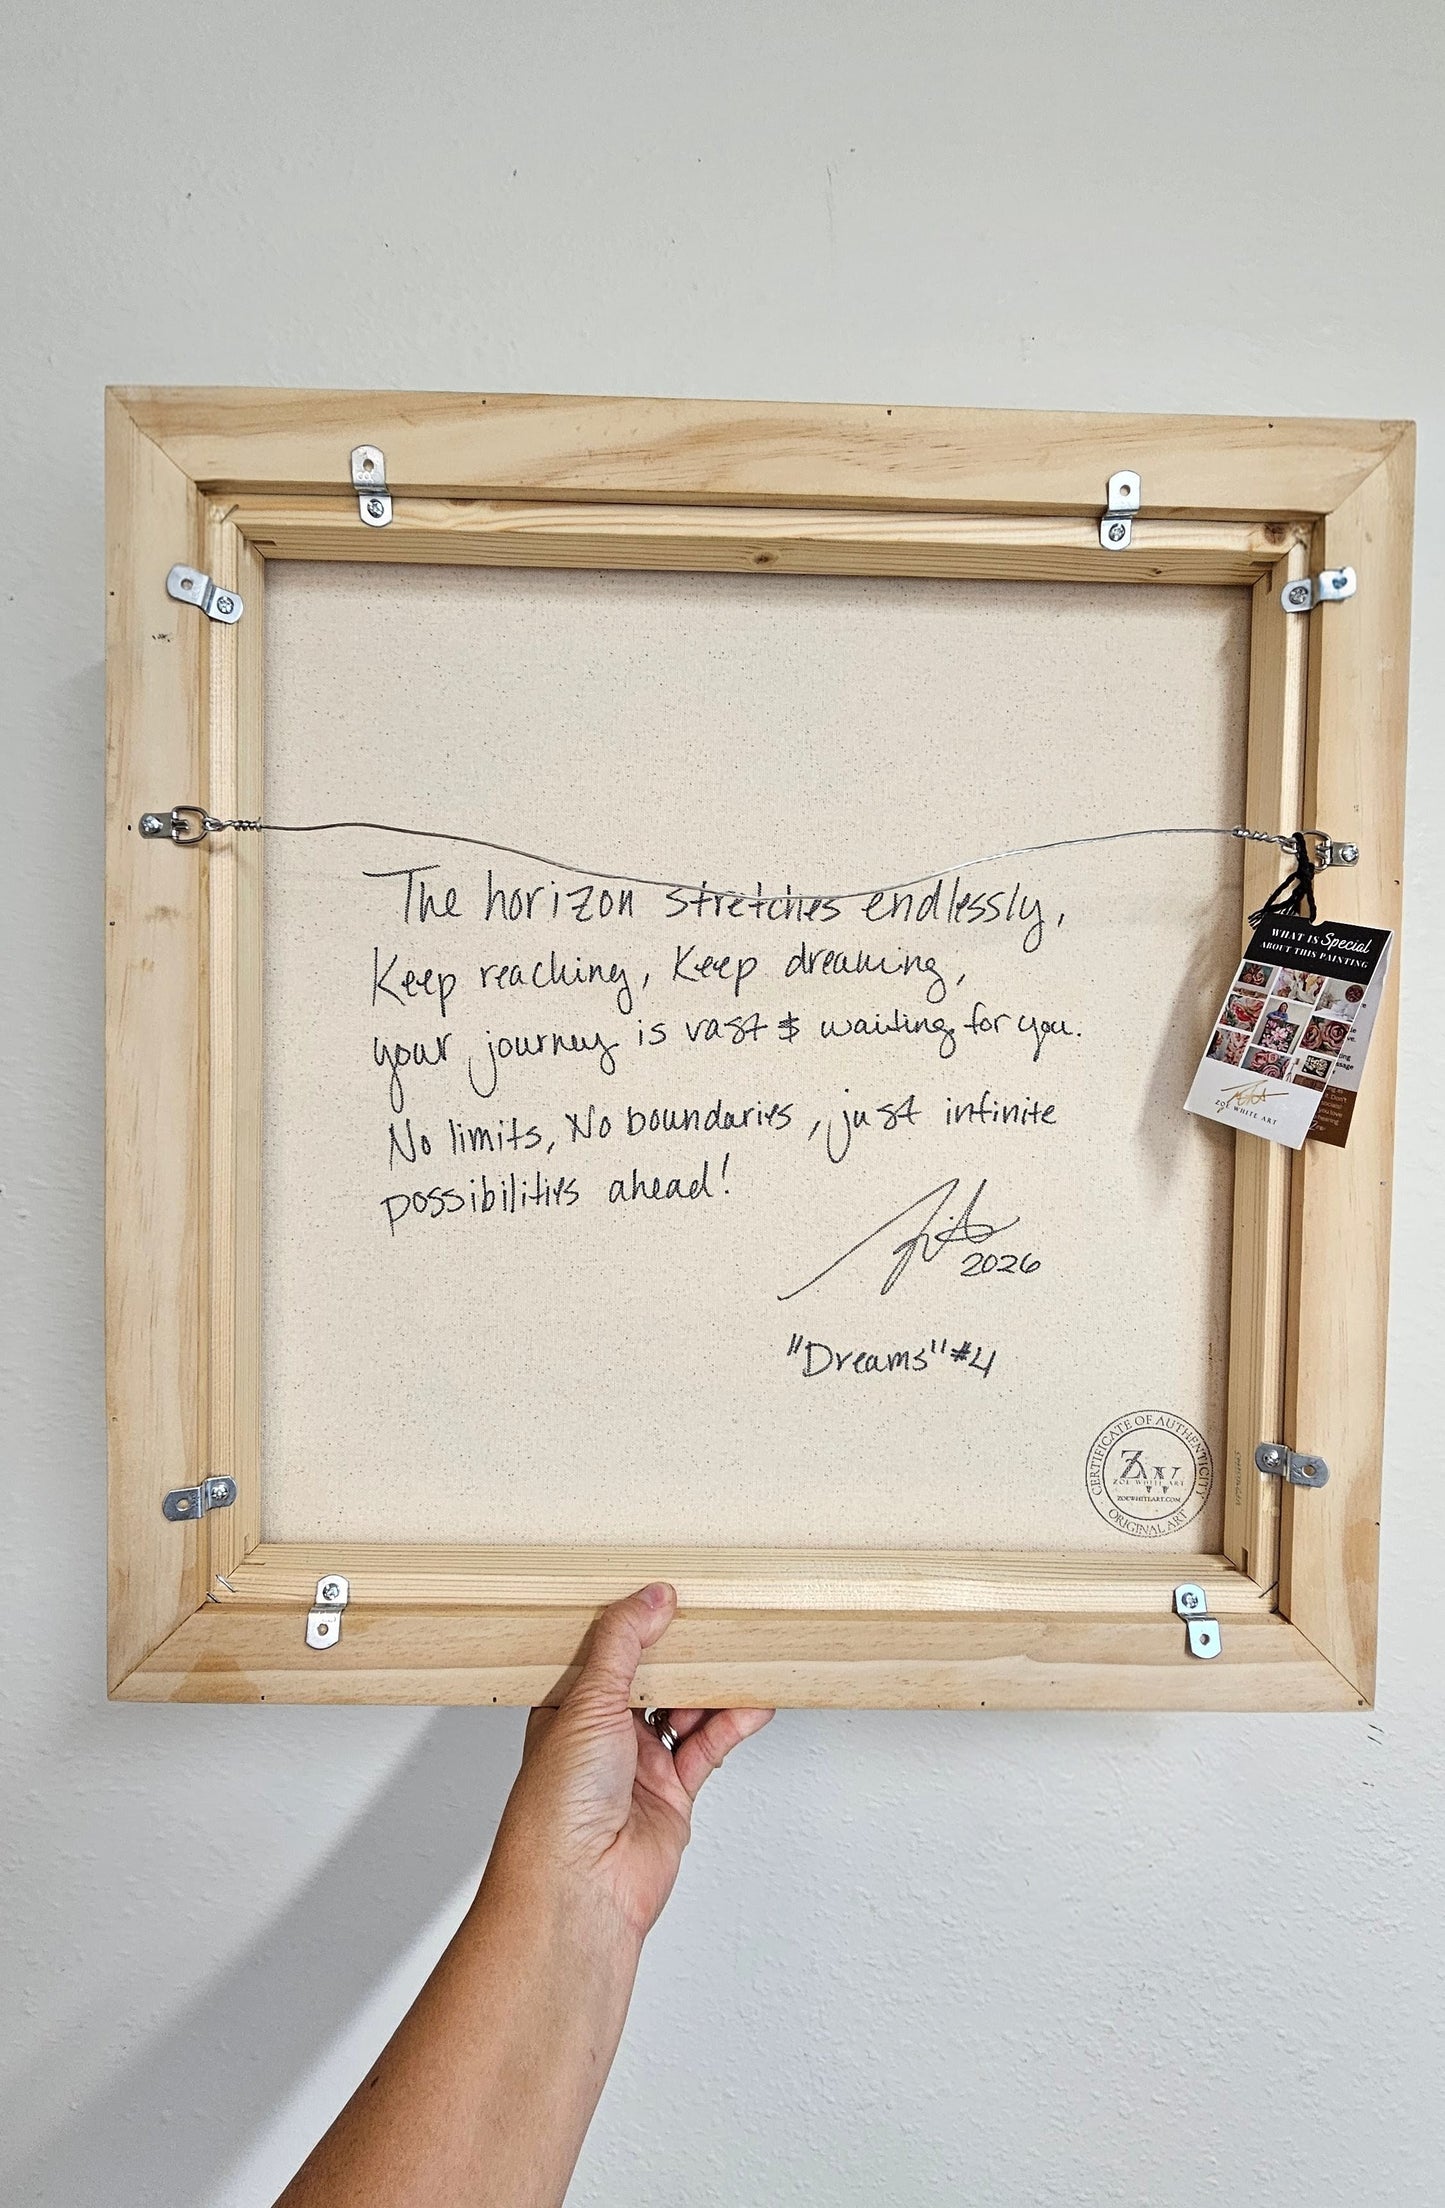 The horizon stretches endlessly,
Keep reaching, Keep dreaming,
your journey is vast & waiting for you.
No limits, No boundaries, just infinite
possibilities ahead!
2026
"Dreams" #4
WHAT IS Special
ABOUT THIS PAINTING
ZOE WHITE ART
CERTIFICATE OF AUTHENTICITY
ZW
ZOE WHITE ART
ZOEWHITEART.COM
ORIGINAL ART